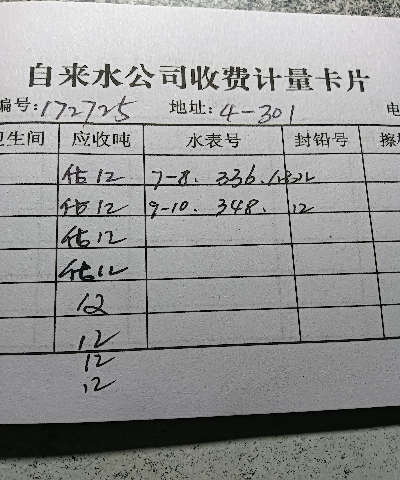 自来水公司收费计量卡片
编号:172725 地址:4-301 电
卫生间 应收吨 水表号 封铅号 擦
估12 7-8. 336.
估12 9-10. 348. 12
估12
估12
12
12
12
12